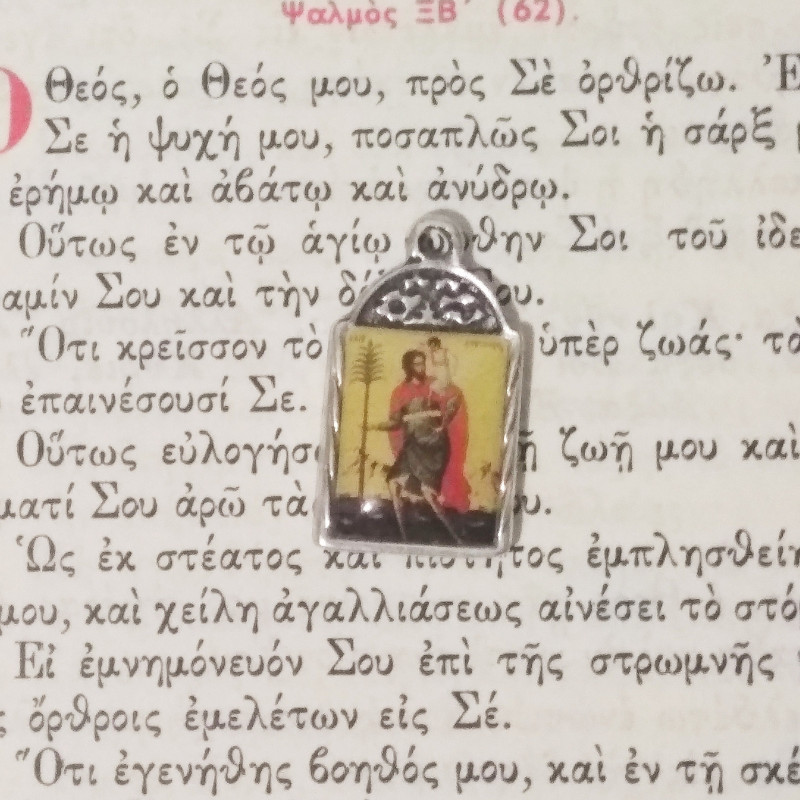 Ψαλμὸς ΞΒ´ (62).
Ὁ Θεός, ὁ Θεός μου, πρὸς Σὲ ὀρθρίζω.
Σε ἡ ψυχή μου, ποσαπλῶς Σοι ἡ σάρξ
ἐρήμῳ καὶ ἀβάτῳ καὶ ἀνύδρῳ.
Οὕτως ἐν τῷ ἁγίῳ ὤφθην Σοι τοῦ ἰδε
αμίν Σου καὶ τὴν
"Ὅτι κρεῖσσον τὸ ὑπὲρ ζωάς· τὰ
ἐπαινέσουσί Σε.
Οὕτως εὐλογήσ ζωῇ μου καὶ
ματί Σου ἀρῶ τὰς
Ὡς ἐκ στέατος καὶ πιότητος ἐμπλησθείη
μου, καὶ χείλη ἀγαλλιάσεως αἰνέσει τὸ στό
Εἰ ἐμνημόνευόν Σου ἐπὶ τῆς στρωμνῆς
ὄρθροις ἐμελέτων εἰς Σέ.
Ὅτι ἐγενήθης βοηθός μου, καὶ ἐν τῇ σκέ